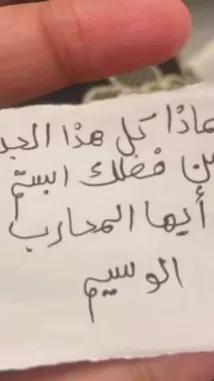 لماذا كل هذا
من فضلك ابتسم
أيها المحارب
الوسيم